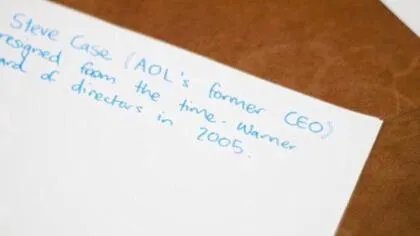 Steve Case (AOL's former CEO)
resigned from the time. Warner
ard of directors in 2005.